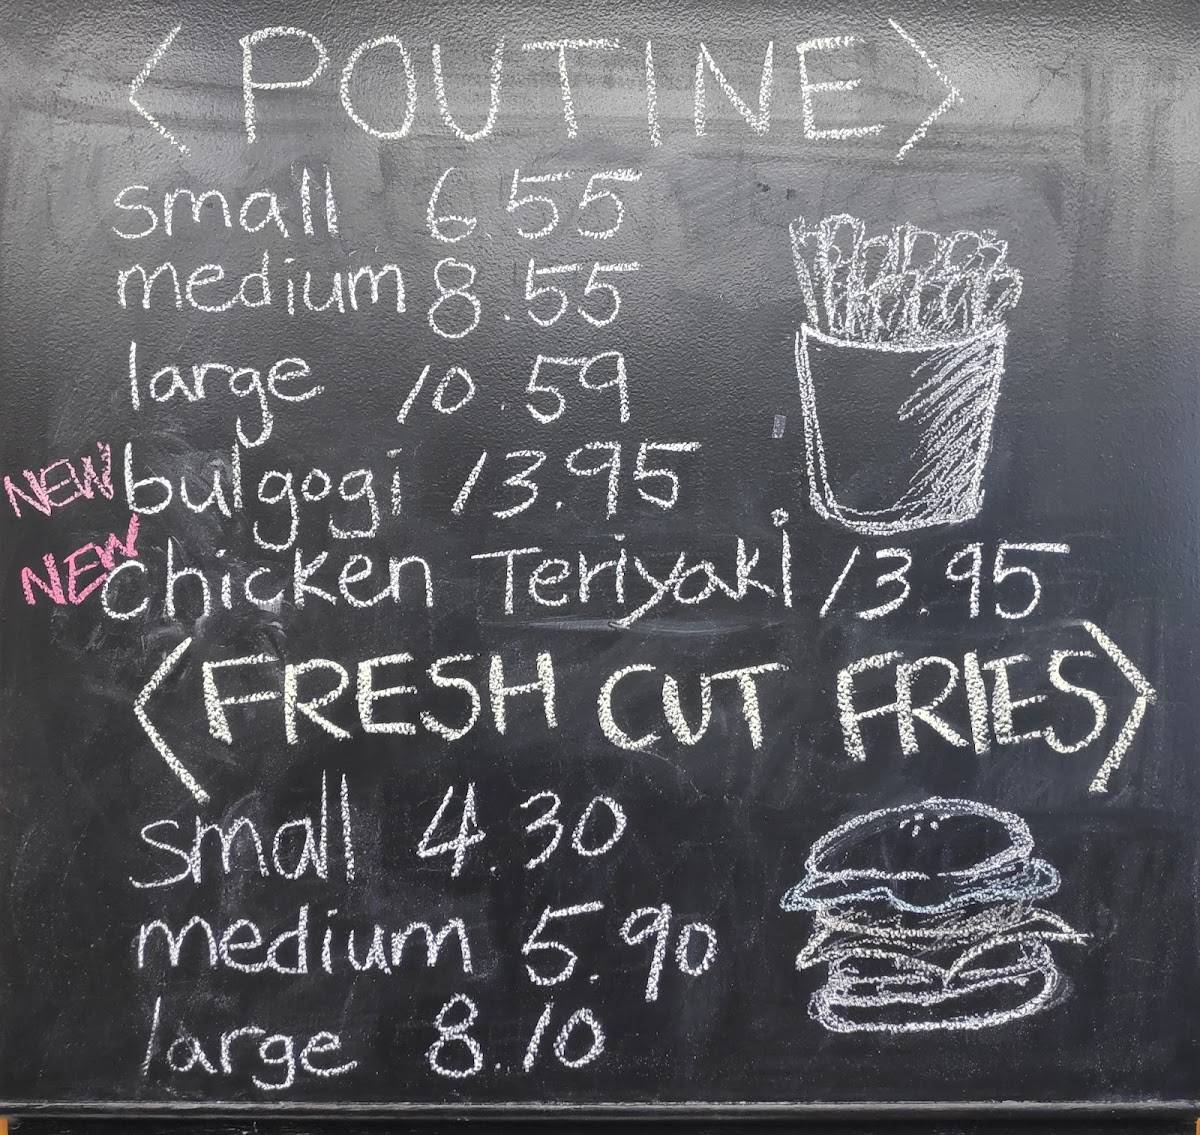 <POUTINE>
small 6.55
medium 8.55
large 10.59
NEW bulgogi 13.95
NEW chicken Teriyaki 13.95
<FRESH CUT FRIES>
small 4.30
medium 5.90
large 8.10